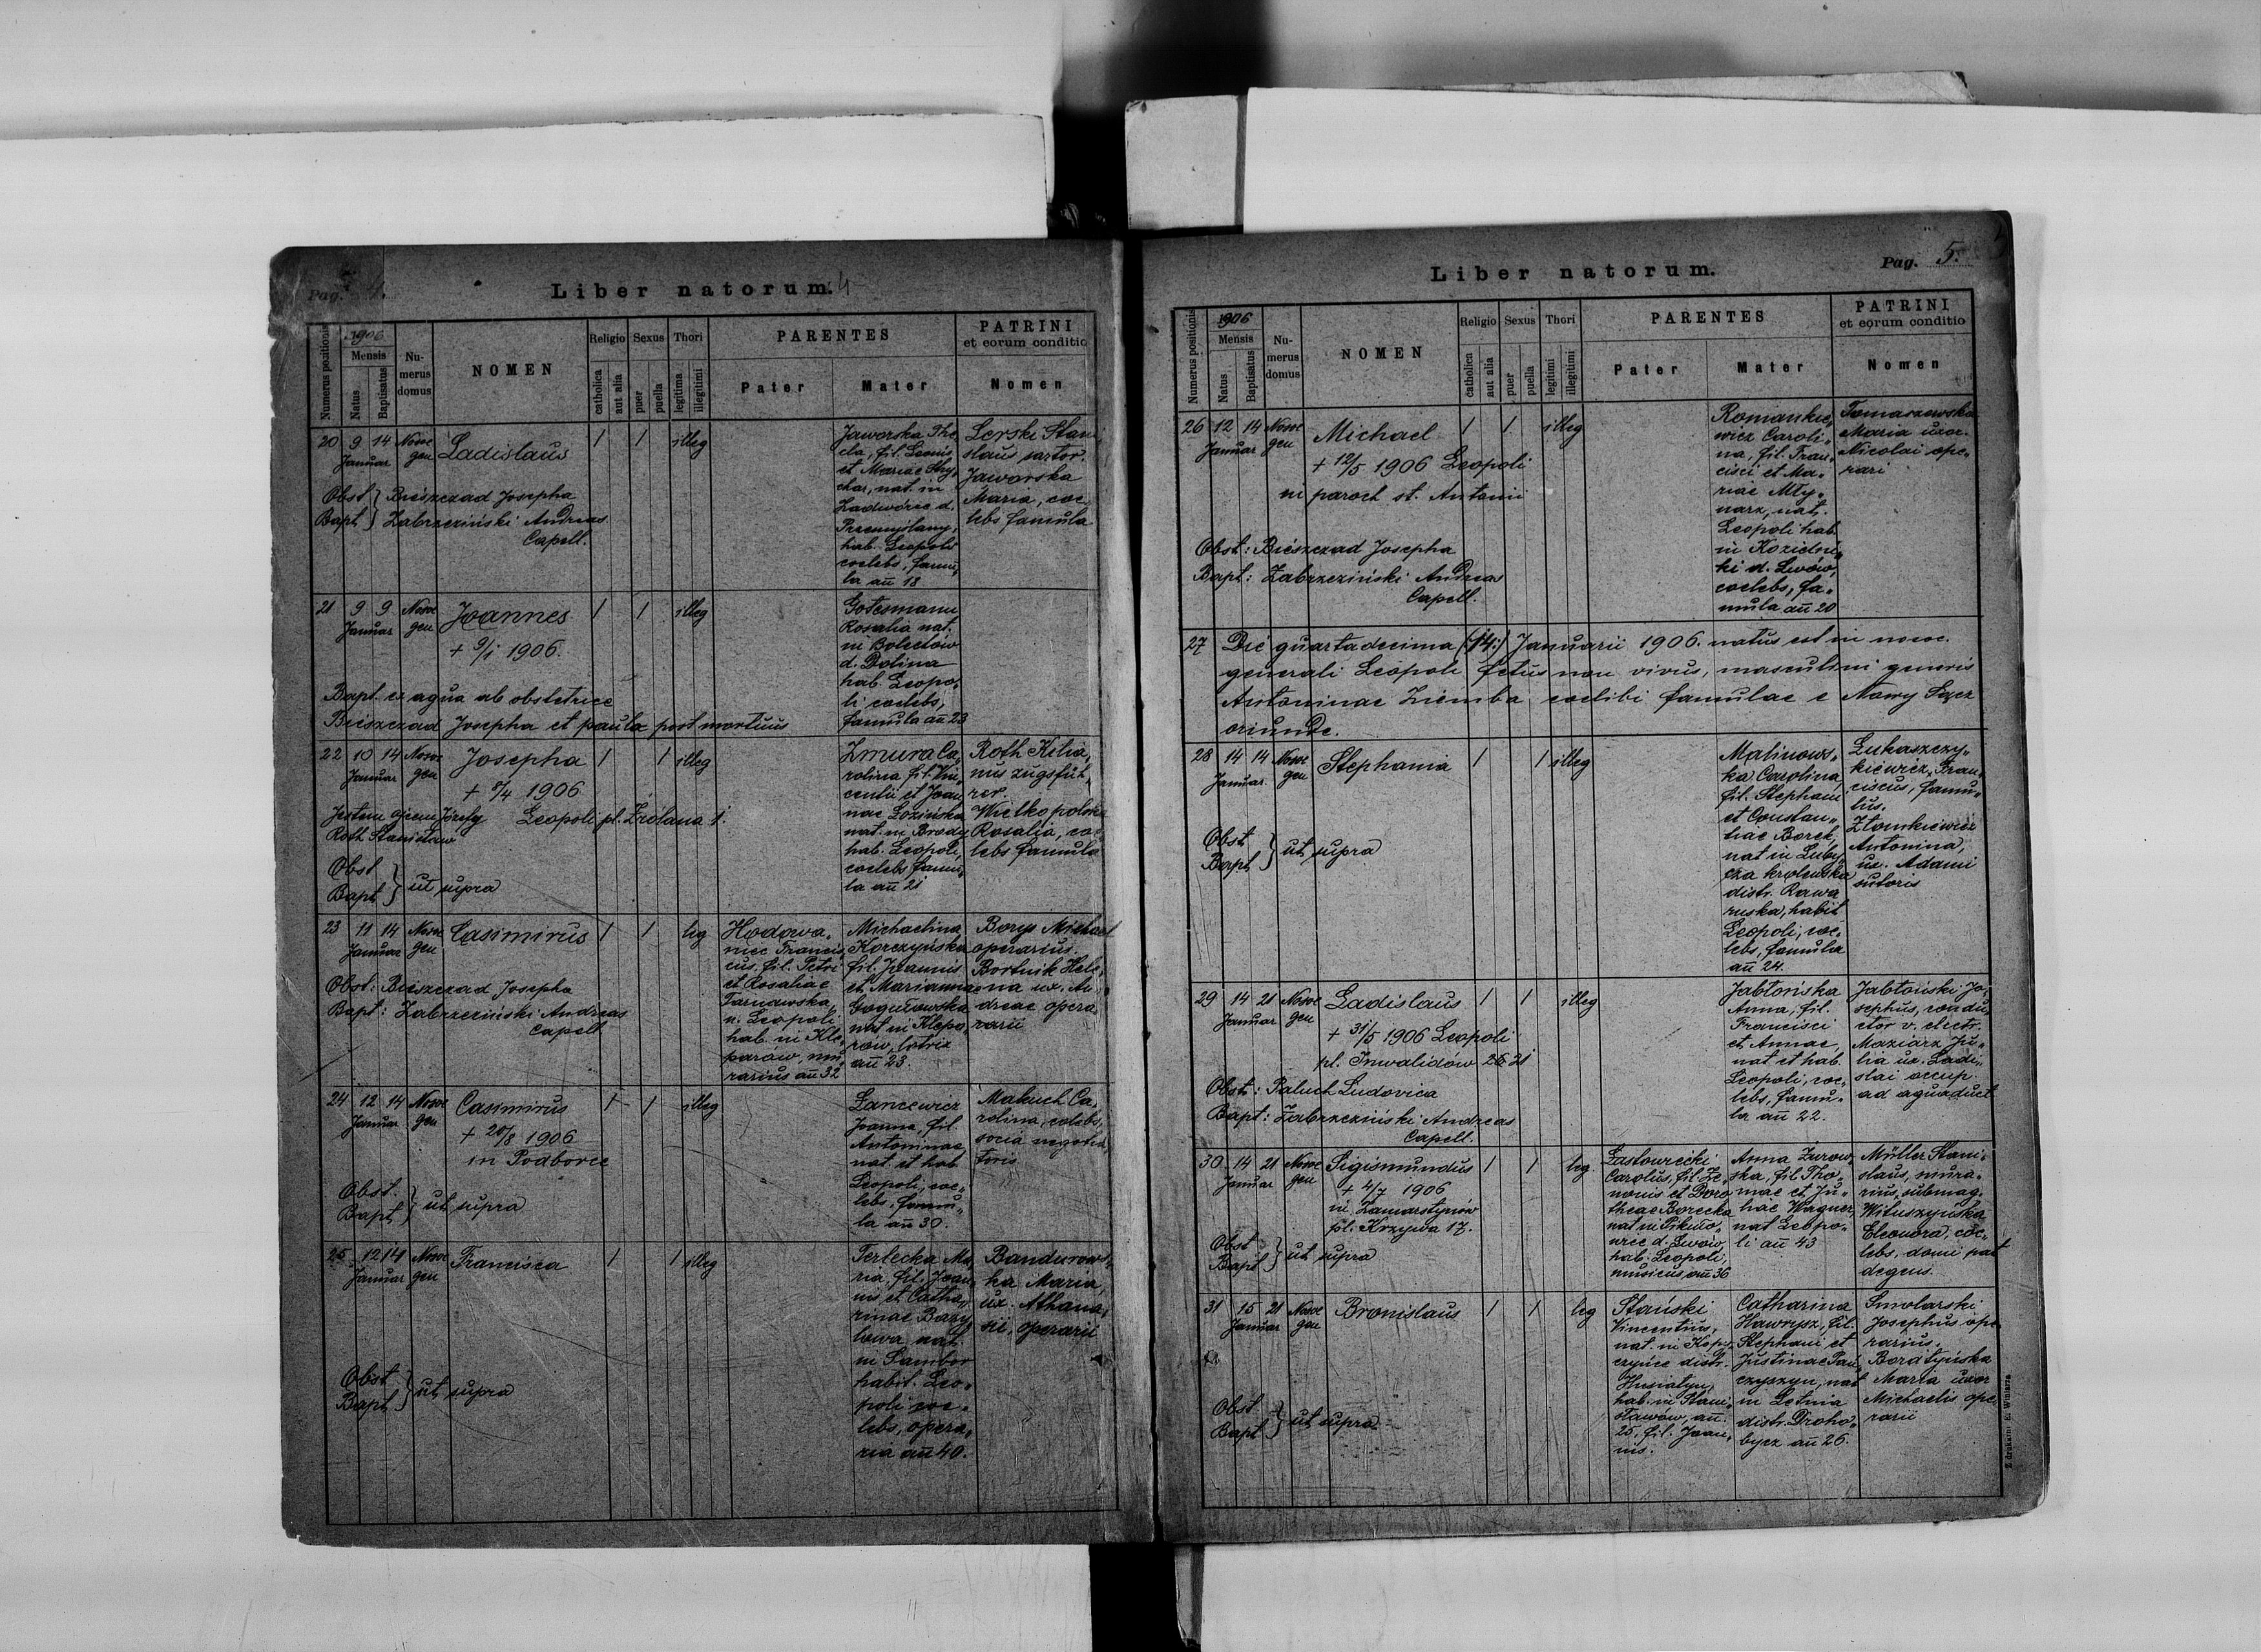 Pag. 4.
Liber natorum. 4
Numerus positionis
1906
Mensis
Natus
Baptisatus
Nu-
merus
domus
NOMEN
Religio
catholica
aut alia
Sexus
puer
puella
Thori
legitima
illegitimi
PARENTES
Pater
Mater
PATRINI
et eorum conditio
Nomen
20 9 14 Nosoc Ladislaus 1 1 illeg
Januar gen
Obst } Bieszczad Josepha
Bapt } Zabrzeziński Andreas
Capell.
Jaworska The,
cla, fil. Leonis
et Mariae Shy,
char, nat. in
Zadwórze d.
Przemyślany,
hab. Leopoli
coelebs, famu,
la añ 18
Lerski Stani
slaus sartor.
Jaworska
Maria, coe,
lebs famula
21 9 9 Nosoc Joannes 1 1 illeg
Januar gen
+ 9/1 1906.
Bapt. ex aqua ab obstetrice
Bieszczad Josepha et paula post mortuus
Gotesmann
Rosalia nat.
in Bolechów
d. Dolina
hab. Leopo,
li coelebs,
famula añ 23
22 10 14 Nosoc Josepha 1 1 illeg
Januar gen
+ 5/4 1906
Jestem ojcem Józefy Leopoli pl. Zrólana 1.
Roth Stanisław
Obst
Bapt } ut supra
Zmura Ca,
rolina fil. Vin
centii et Joan,
nae Łozińska
nat. in Brody
hab. Leopoli,
coelebs famu,
la añ 21
Roth Kilia,
nus zugsfüh,
rer.
Wielkopolska
Rosalia, coe
lebs famula
23 11 14 Nosoc Casimirus 1 1 leg
Januar gen
Obst: Bieszczad Josepha
Bapt: Zabrzeziński Andreas
Capell
Hodowa,
niec Francis,
cus, fil. Petri
et Rosaliae
Tarnawska,
n. Leopoli
hab. in Kle,
parów, mu,
rarius añ 32
Michaelina
Korczyńska
fil. Joannis
et Mariannae
Gogułowska
nat in Klepa,
row, lotrix
añ 23.
Borys Michael
operarius.
Bortnik Hele,
na ux. An,
dreae opera,
rarii
24 12 14 Nosoc Casimirus 1 1 illeg
Januar gen
+ 20/8 1906
in Podborce
Obst.
Bapt } ut supra
Lancewicz
Joanna, fil.
Antoninae
nat. et hab
Leopoli, coe,
lebs, famu,
la añ 30.
Makuch Ca,
rolina, coelebs,
socia negotia,
toris
25 12 14 Nosoc Francisca 1 1 illeg
Januar gen
Obst
Bapt } ut supra
Terlecka Ma,
ria, fil. Joan,
nis et Catha,
rinae Bary
lowa, nat.
in Sambor
habit. Leo,
poli coe,
lebs, opera,
ria añ 40.
Bandurows,
ka Maria,
ux. Athana,
sii, operarii
Pag. 5.
Liber natorum.
Numerus positionis
1906
Mensis
Natus
Baptisatus
Nu-
merus
domus
NOMEN
Religio
catholica
aut alia
Sexus
puer
puella
Thori
legitimi
illegitimi
PARENTES
Pater
Mater
PATRINI
et eorum conditio
Nomen
26 12 14 Nosoc Michael 1 1 illeg
Januar gen
+ 12/5 1906 Leopoli
in paroch st. Antonii
Obst: Bieszczad Josepha
Bapt: Zabrzeziński Andreas
Capell.
Romankie,
wicz Caroli,
na, fil. Fran,
cisci et Ma,
riae Mły,
narz, nat.
Leopoli hab.
in Kozielni,
ki d. Lwów,
coelebs, fa,
mula añ 20
Tomaszewska
Maria uxor.
Nicolai ope,
rari
27 Die quartadecima (14.) Januarii 1906. natus est in nosoc.
generali Leopoli fetus non vivus, masculini generis
Antoninae Ziemba coelibi famulae e Nowy Sącz
oriunde.
28 14 14 Nosoc Stephania 1 1 illeg
Januar gen
Obst
Bapt } ut supra
Malinows,
ka Carolina,
fil. Stephani
et Constan,
tiae Borek,
nat in Luby,
cza krolewska
distr. Rawa
ruska, habit
Leopoli, coe,
lebs, famula
añ 24.
Łukaszczy,
kiewicz, Fran,
ciscus, famu,
lus.
Złomkiewicz
Antonina,
ux. Adami
sutoris
29 14 21 Nosoc Ladislaus 1 1 illeg
Januar gen
+ 31/5 1906 Leopoli
pl. Inwalidów 26 21
Obst: Paluch Ludovica
Bapt: Zabrzeziński Andreas
Capell.
Jabłońska
Anna, fil.
Francisci
et Annae,
nat et hab.
Leopoli, coe,
lebs, famu,
la añ 22.
Jabłoński Jo,
sephus, condu,
ctor v. electr.
Maziarz Ju,
lia ux. Ladi,
slai occup.
ad aquaduct
30 14 21 Nosoc Sigismundus 1 1 leg.
Januar gen
+ 4/7 1906
in Zamarstynów
pl. Krzywa 17.
Obst
Bapt } ut supra
Lastowiecki
Carolus, fil. Ze,
nonis et Doro
theae Borecka
nat in Pikuło,
wice d. Lwów,
hab. Leopoli,
musicus, añ 36
Anna Żurow,
ska, fil Tho,
mae et Ju,
liae Wagner,
nat Leopo,
li añ 43
Müller Stani,
slaus, mura,
rius, submag.
Wituszyńska
Eleonora, coe,
lebs, domi pat
degens.
31 15 21 Nosoc Bronislaus 1 1 leg
Januar gen
Obst
Bapt } ut supra
Stański
Vincentius,
nat. in Kopy,
czyńce distr.
Husiatyn,
hab. in Stani,
sławów, añ.
25, fil. Joan,
nis.
Catharina
Hawrysz, fil.
Stephani et
Justinae Pan,
czyszyn, nat
in Letnia
distr. Droho,
bycz añ 26.
Smolarski
Josephus ope,
rarius.
Boratyńska
Maria uxor
Michaelis ope,
rarii
Z drukarni E. Winiarza